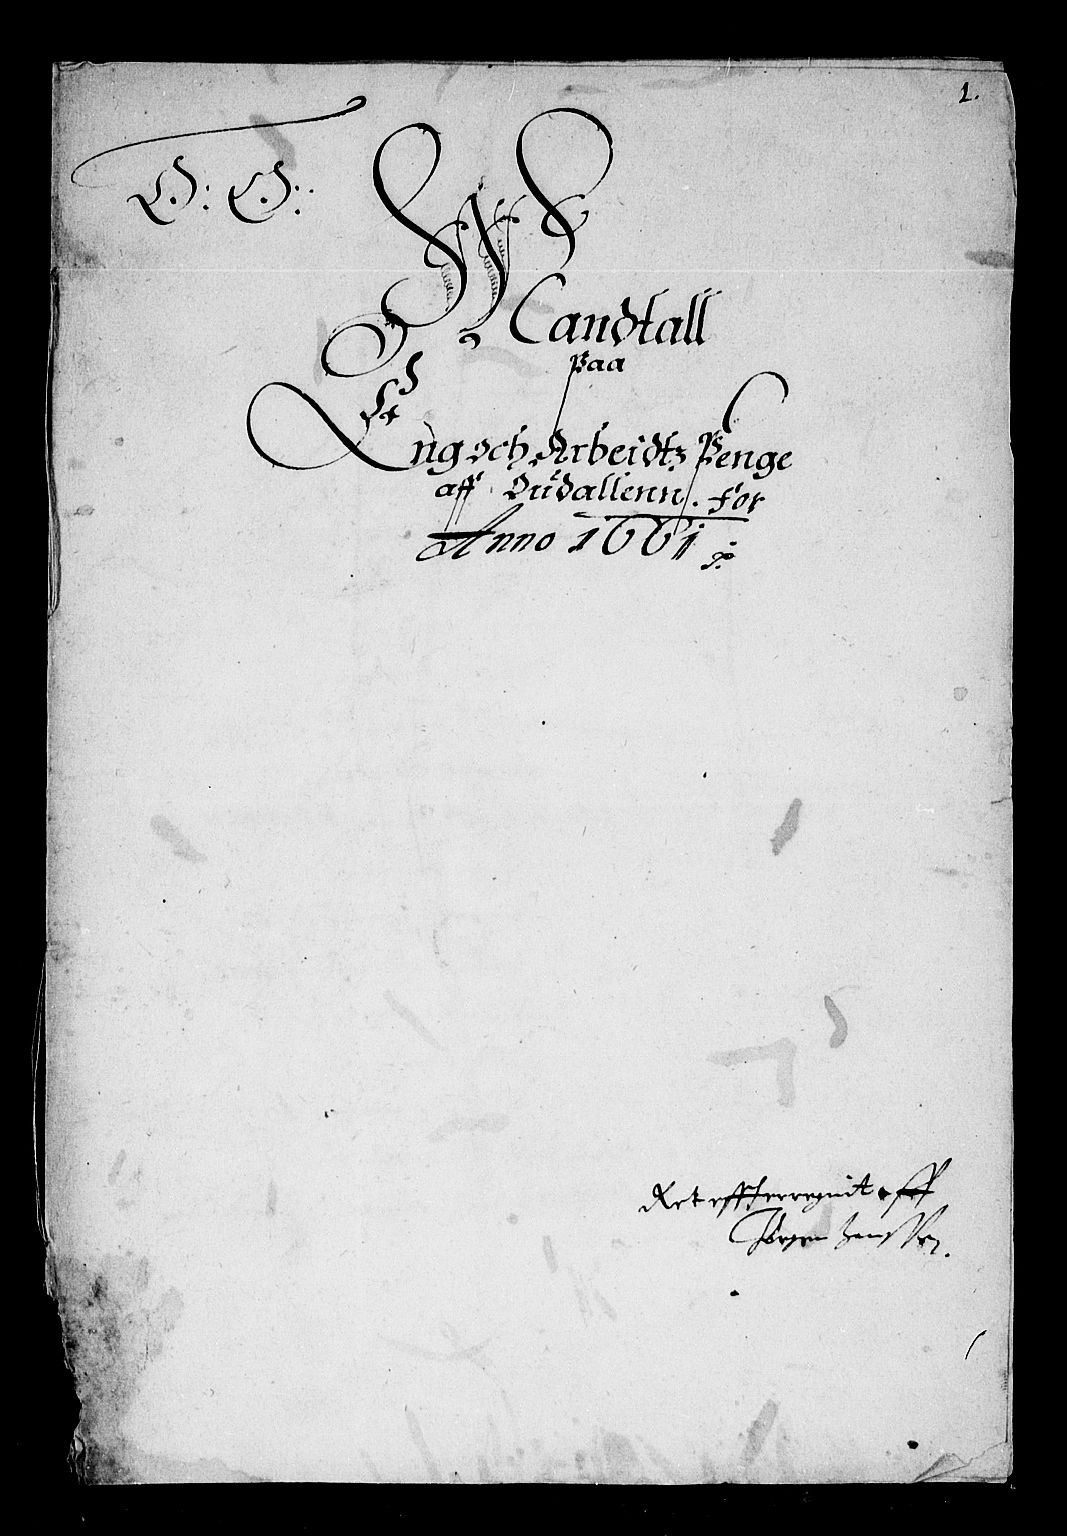 1.
Mandtall
paa
Eng och Arbeidtz Penge
aff Gudallenn. for
Anno 1661
Ret effterregnit aff
Jørgen Hanssen.